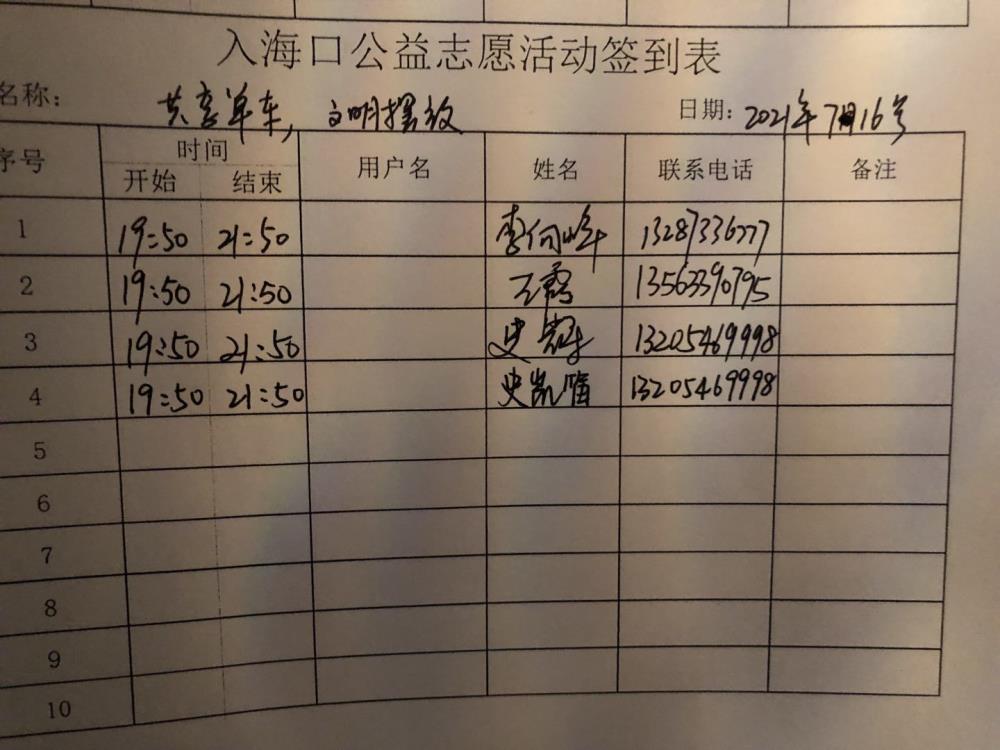 入海口公益志愿活动签到表
名称： 共享单车，文明摆放 日期：2021年7月16号
序号 时间 用户名 姓名 联系电话 备注
开始 结束
1 19:50 21:50 李向峰 13287336777
2 19:50 21:50 王霞 13563390795
3 19:50 21:50 史 13205469998
4 19:50 21:50 史凯 13205469998
5
6
7
8
9
10